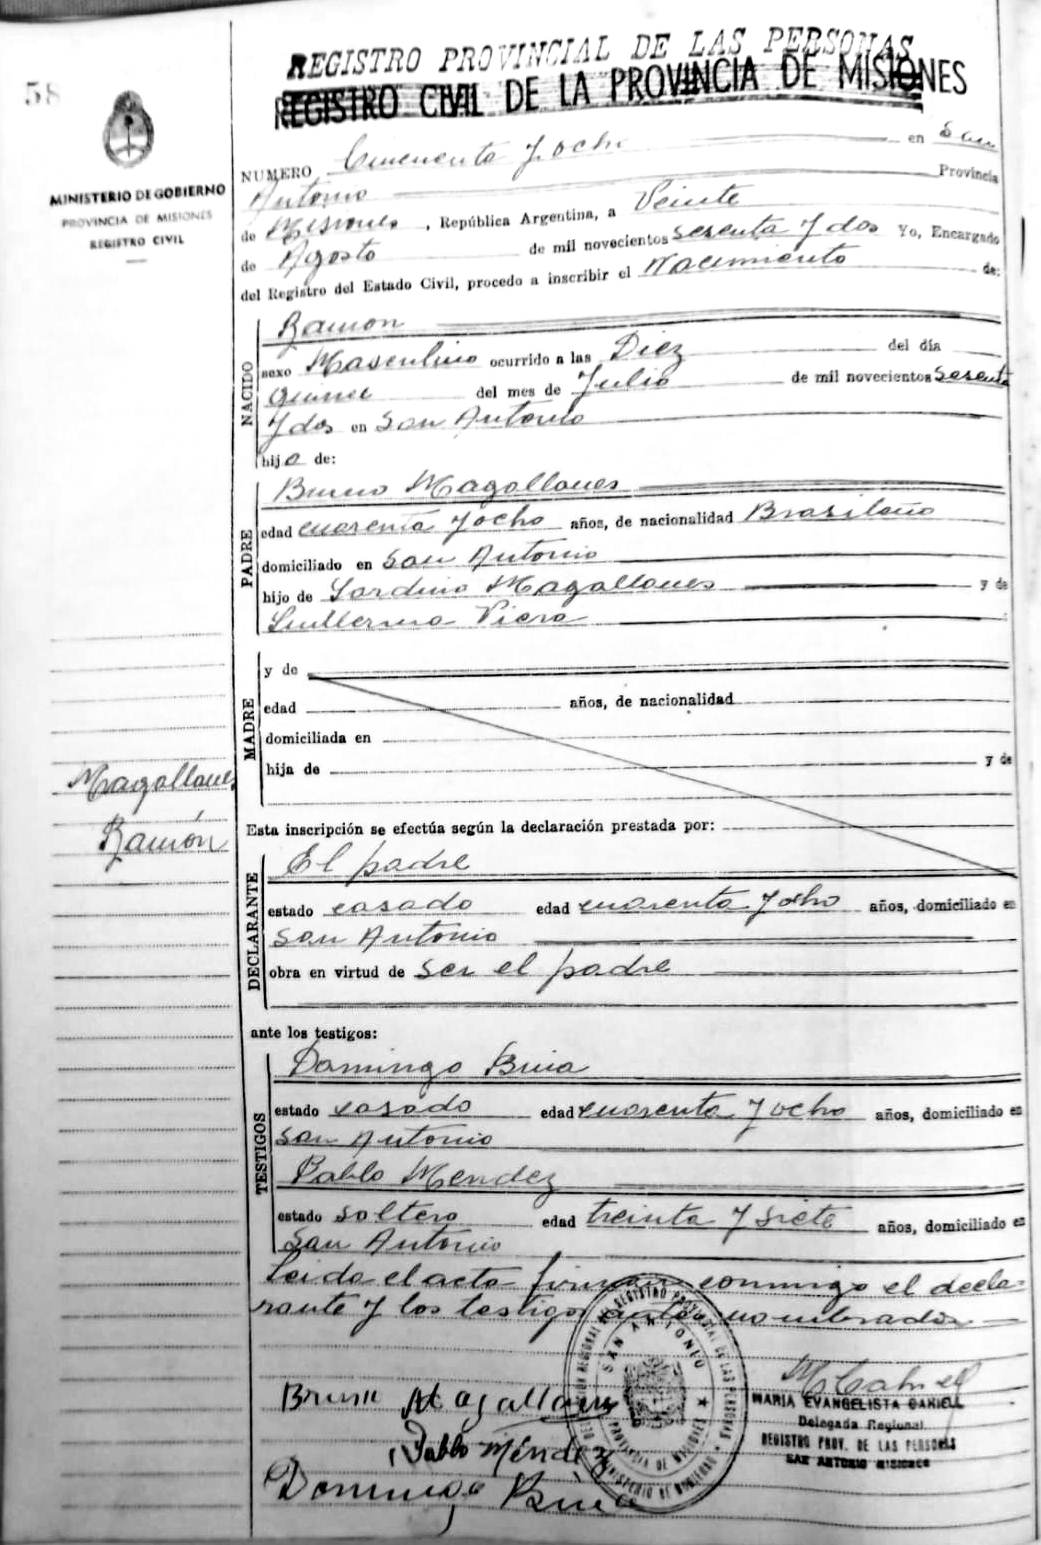 REGISTRO PROVINCIAL DE LAS PERSONAS
REGISTRO CIVIL DE LA PROVINCIA DE MISIONES
58
MINISTERIO DE GOBIERNO
PROVINCIA DE MISIONES
REGISTRO CIVIL
NUMERO Cincuenta y ocho en San
Antonio Provincia
de Misiones, República Argentina, a Veinte
de Agosto de mil novecientos sesenta y dos Yo, Encargado
del Registro del Estado Civil, procedo a inscribir el Nacimiento de:
NACIDO
Ramon
sexo Masculino ocurrido a las Diez del día
quince del mes de Julio de mil novecientos sesenta
y dos en San Antonio
hijo de:
PADRE
Bruno Magallanes
edad cuarenta y ocho años, de nacionalidad Brasileño
domiciliado en San Antonio
hijo de Magallanes y de
Viera
MADRE
y de
edad años, de nacionalidad
domiciliada en
hija de y de
Magallanes
Ramón
Esta inscripción se efectúa según la declaración prestada por:
DECLARANTE
El padre
estado casado edad cuarenta y ocho años, domiciliado en
San Antonio
obra en virtud de ser el padre
ante los testigos:
TESTIGOS
Domingo
estado casado edad cuarenta y ocho años, domiciliado en
San Antonio
Pablo Mendez
estado soltero edad treinta y siete años, domiciliado en
San Antonio
Leida el acta firman conmigo el decla-
rante y los testigos nombrados
Bruno Magallanes
Pablo Méndez
Domingo
SAN ANTONIO
PROVINCIA DE MISIONES
REGISTRO PROVINCIAL DE LAS PERSONAS
MARIA EVANGELISTA
Delegada Regional
REGISTRO PROV. DE LAS PERSONAS
SAN ANTONIO MISIONES